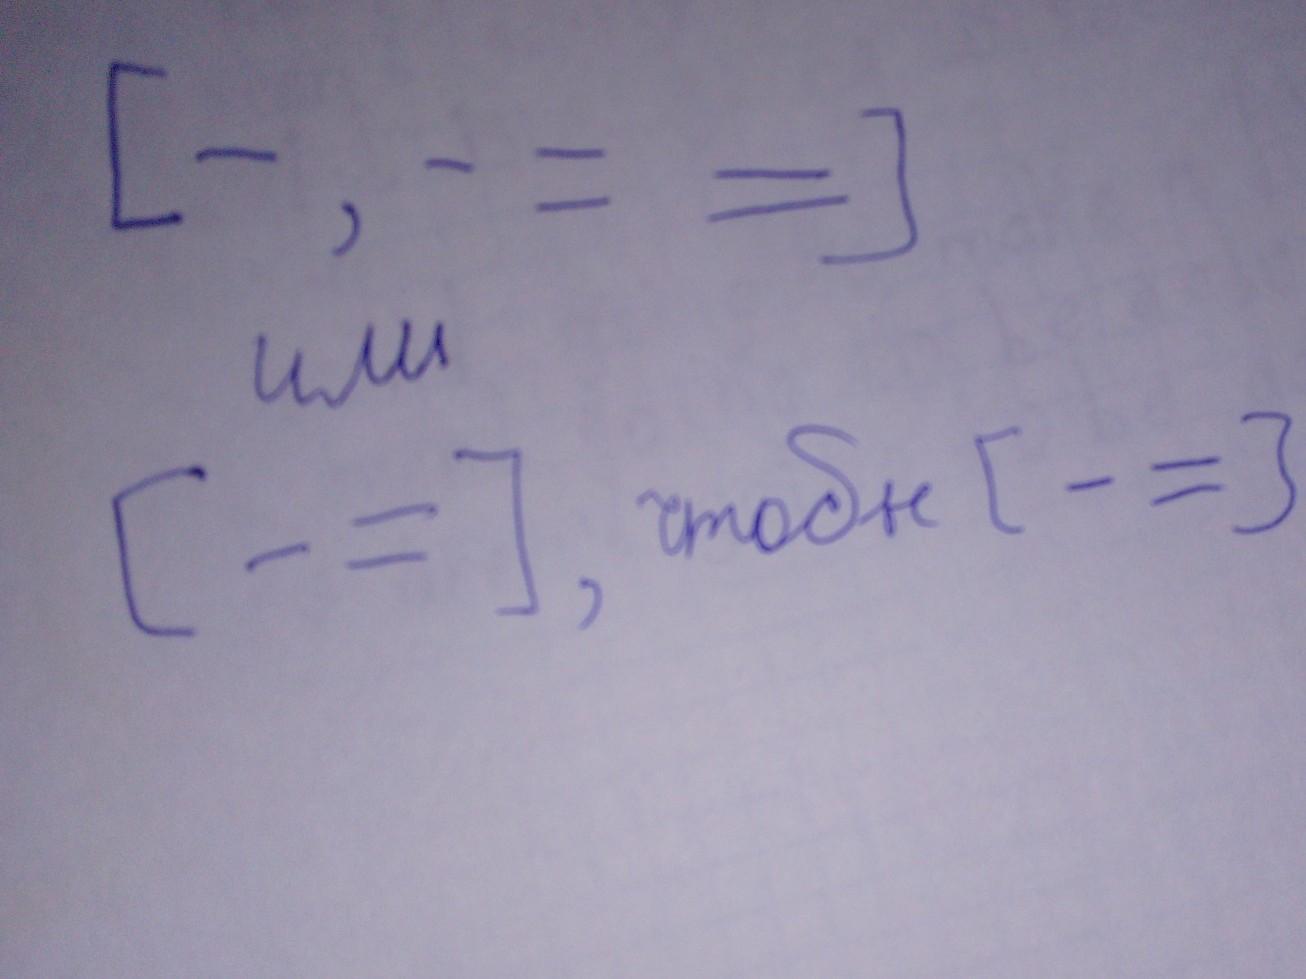 [–, - = =]
или
[- =], чтобы [- =]